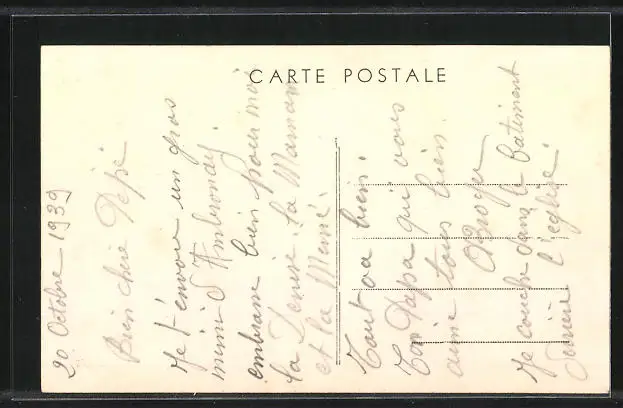 CARTE POSTALE
20 Octobre 1939
Bien chère Pépé
Je t'envoie un gros
mimi d'Ambronay
embrasse bien pour moi
la Denise. La Maman
et la Mémé.
Tout va bien.
Ton Papa qui vous
aime tous bien.
Je couche dans le batiment
derrière l'église.